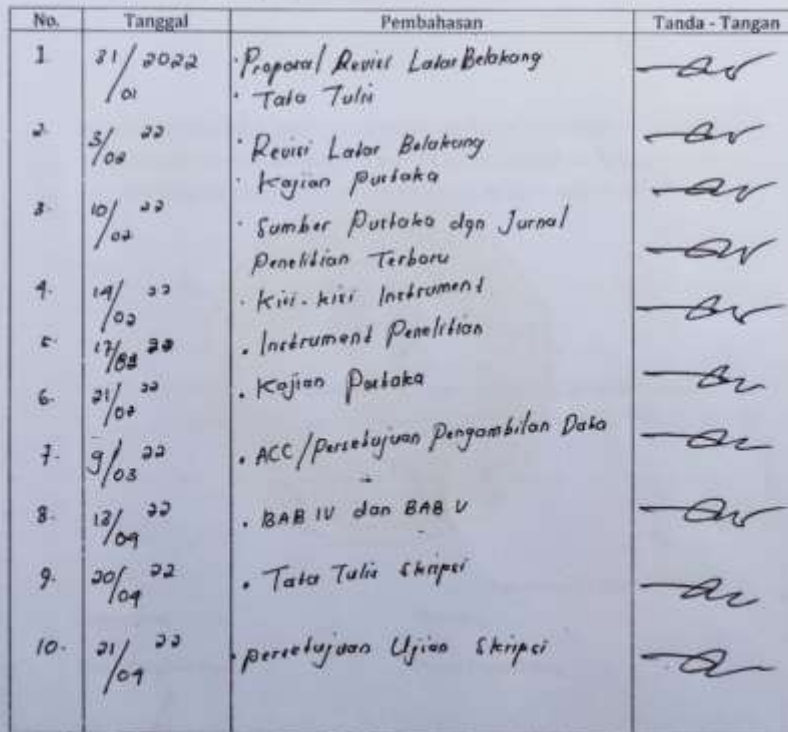 No. Tanggal Pembahasan Tanda - Tangan
1 31/01 2022 · Proposal Revisi Latar Belakang
· Tata Tulis
2. 3/02 22 · Revisi Latar Belakang
· Kajian Pustaka
3. 10/02 22 · Sumber Pustaka dgn Jurnal
Penelitian Terbaru
4. 14/02 22 · Kisi-kisi Instrument
5. 17/02 22 · Instrument Penelitian
6. 21/02 22 · Kajian Pustaka
7. 9/03 22 · ACC/Persetujuan Pengambilan Data
8. 13/04 22 · BAB IV dan BAB V
9. 20/04 22 · Tata Tulis Skripsi
10. 21/04 22 · persetujuan Ujian Skripsi